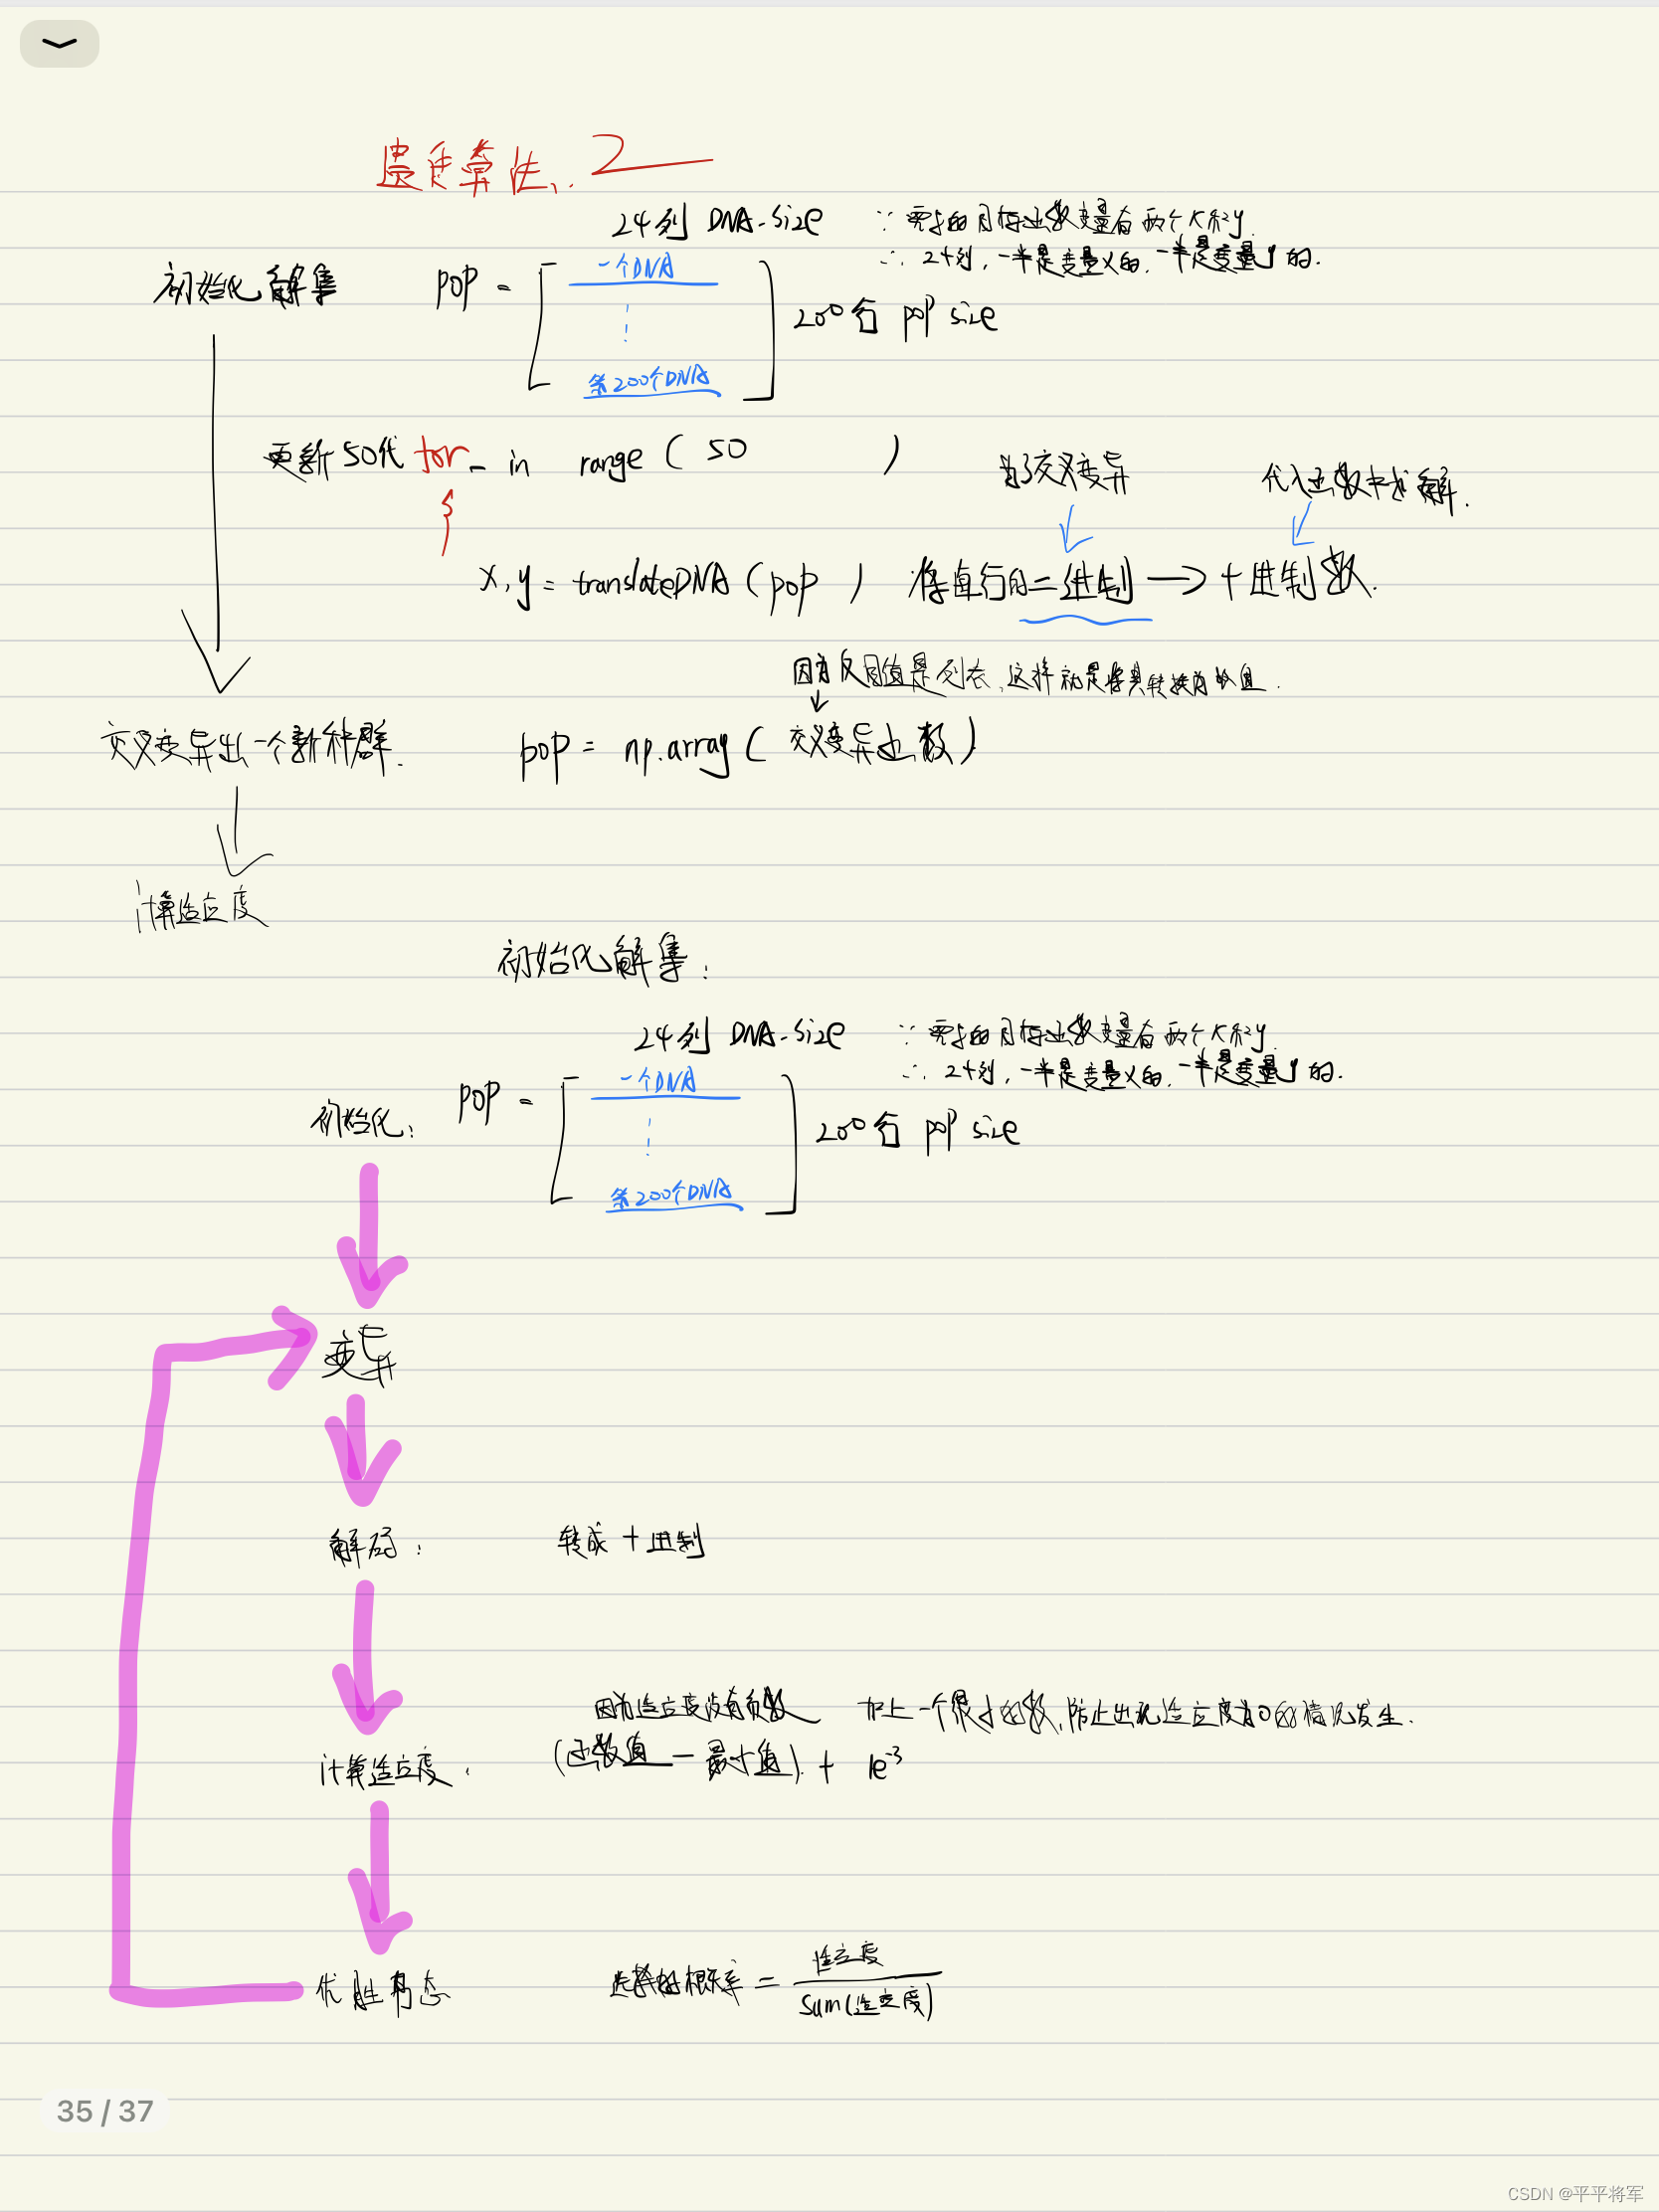 遗传算法: 2
24列 DNA-size ∵ 目标函数变量有两个X和y.
初始化解集 pop = 一个DNA ∴ 24列, 一半是变量x的, 一半是变量y的.
200行 pop size
第200个DNA
更新50代 for _ in range ( 50 )
为了交叉变异 代入函数中求解.
x, y = translateDNA ( pop ) 将每行的二进制 → 十进制数.
因为返回值是列表, 这样就是将其转换为数值.
交叉变异出一个新种群. pop = np.array ( 交叉变异函数 )
计算适应度
初始化解集:
24列 DNA-size ∵ 目标函数变量有两个X和y.
初始化: pop = 一个DNA ∴ 24列, 一半是变量x的, 一半是变量y的.
200行 pop size
第200个DNA
变异
解码: 转成十进制
因为适应度没有负数 加上一个很小的数, 防止出现适应度为0的情况发生.
计算适应度: (函数值 - 最小值) + 1e-3
优胜劣汰 选择的概率 = 适应度 / sum(适应度)
35 / 37
CSDN @平平将军